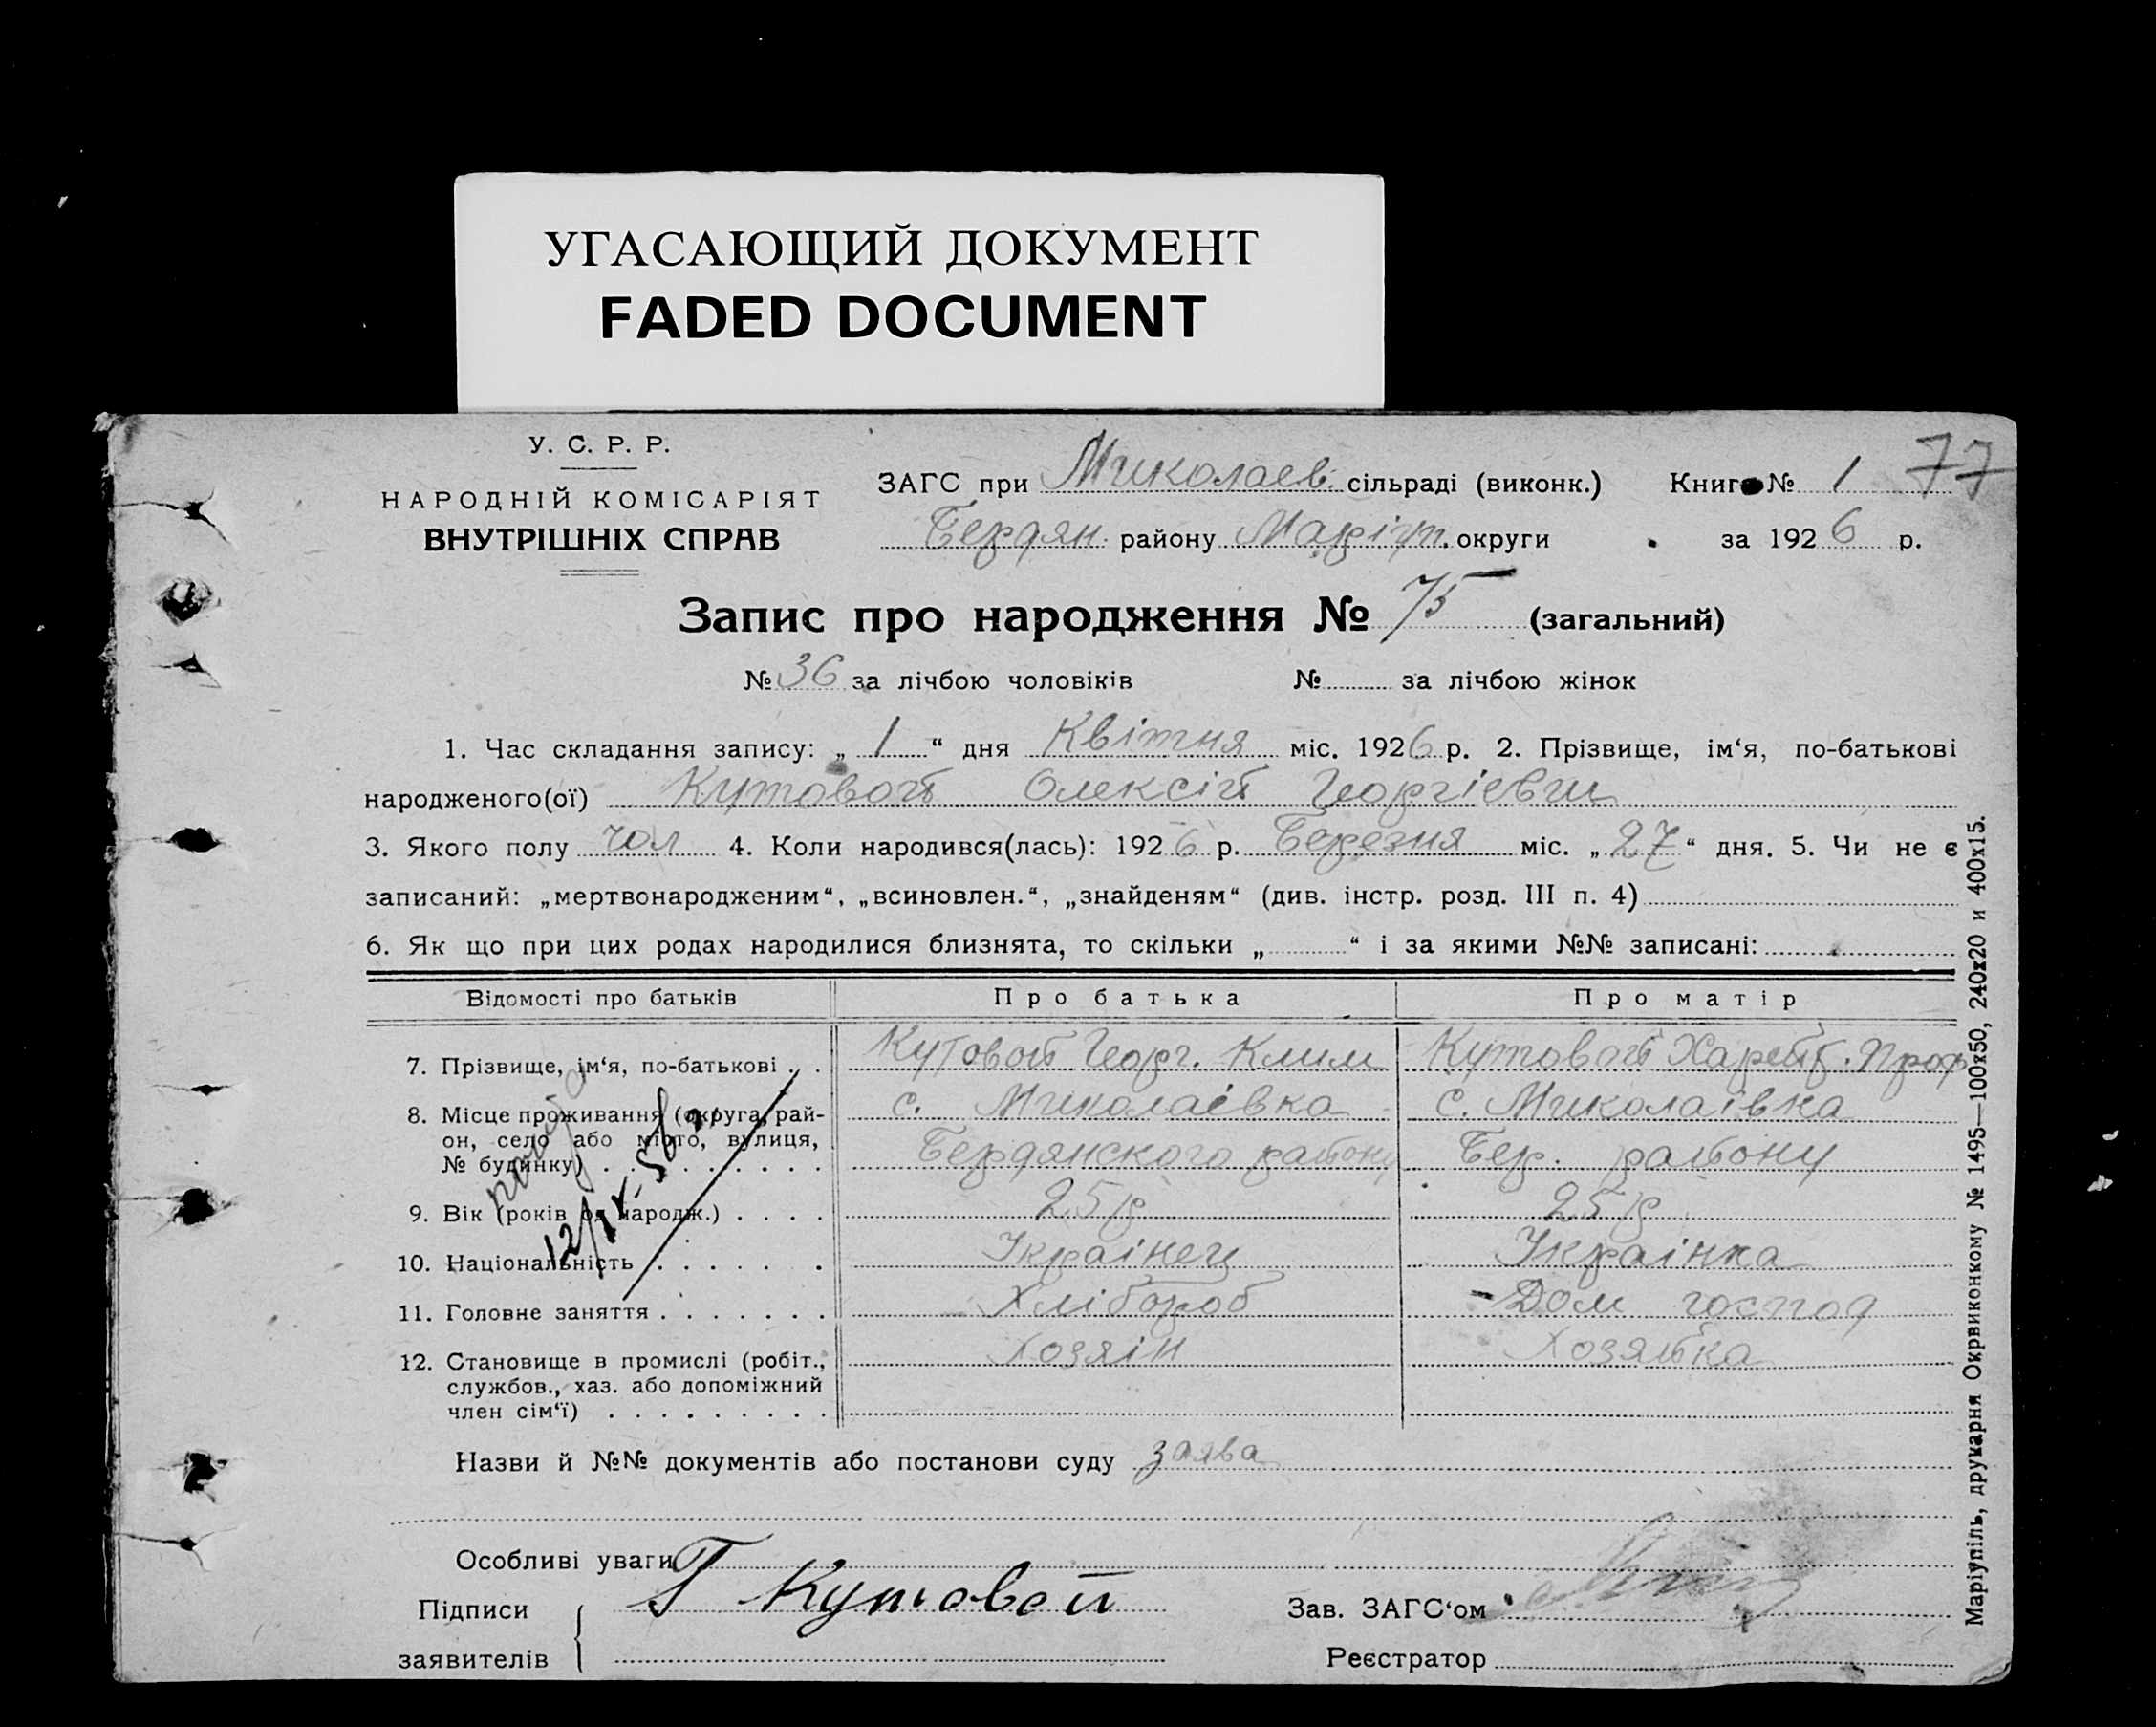 УГАСАЮЩИЙ ДОКУМЕНТ
FADED DOCUMENT
У. С. Р. Р.
НАРОДНІЙ КОМІСАРІЯТ
ВНУТРІШНІХ СПРАВ
ЗАГС при Миколаев. сільраді (виконк.) Книга № 1 77
Бердян. району Маріуп. округи за 1926 р.
Запис про народження № 75 (загальний)
№ 36 за лічбою чоловіків № за лічбою жінок
1. Час складання запису: „ 1 “ дня Квітня міс. 1926 р. 2. Прізвище, ім‘я, по-батькові
народженого(ої) Кутовой Олексій Георгіевич
3. Якого полу чол 4. Коли народився(лась): 1926 р. Березня міс. „ 27 “ дня. 5. Чи не є
записаний: „мертвонародженим“, „всиновлен.“, „знайденям“ (див. інстр. розд. III п. 4)
6. Як що при цих родах народилися близнята, то скільки „ “ і за якими №№ записані:
Відомості про батьків Про батька Про матір
7. Прізвище, ім‘я, по-батькові . . Кутовой Георг. Клим Кутовой Прох
8. Місце проживання (округа, рай- с. Миколаівка с. Миколаівка
он, село або місто, вулиця,
№ будинку) . . . . . . . . . Бердянского району Бер. району
9. Вік (років од народж.) . . . . 25 р 25 р
10. Національність . . . . . . . Украінец Украінка
11. Головне заняття . . . . . . . Хлібороб Дом господ
12. Становище в промислі (робіт., Хозяін Хозяйка
службов., хаз. або допоміжний
член сім‘ї) . . . . . . . . .
12/IX-58
Назви й №№ документів або постанови суду заява
Особливі уваги
Підписи Г Кутовой Зав. ЗАГС‘ом
заявителів Реєстратор
Маріупіль, друкарня Окрвиконкому № 1495—100х50, 240х20 и 400х15.